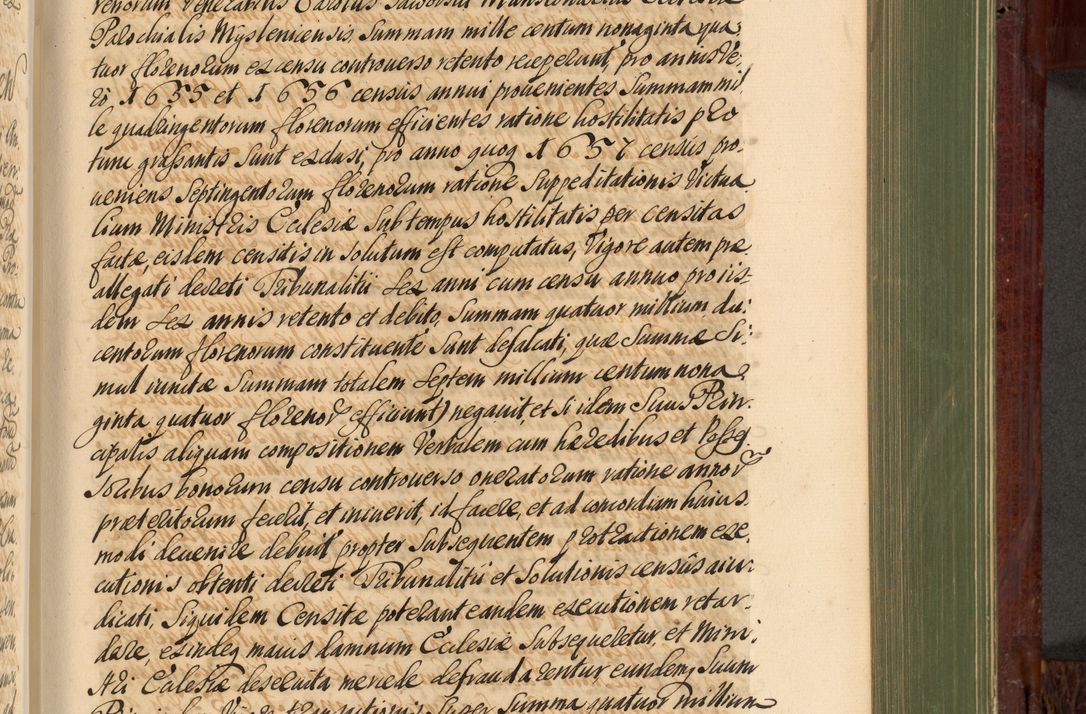 Parochialis Myslenicensis, Summam mille centum nonaginta qua,
tuor florenorum ex censu controverso retento receperunt, pro annis ve,
rò 1655 et 1656 census annui provenientes Summam mil,
le quadringentorum florenorum efficientes ratione hostilitatis pro
tunc grassantis Sunt exclusi, pro anno quoq 1657 census pro,
veniens Septingentorum florenorum ratione Suppeditationis Victua
lium Ministris Ecclesiæ Sub tempus hostilitatis per censitas
factæ, eisdem censitis in Solutum est computatus, Vigore autem præ
allegati decreti Tribunalitii Sex anni cum censu annuo pro iis,
dem Sex annis retento et debito, Summam quatuor millium du,
centorum florenorum constituente Sunt defalcati, quæ Summæ Si,
mul iunctæ Summam totalem Septem millium centum nona,
ginta quatuor florenor efficiunt) negavit, et Si idem Suus Prin,
cipalis aliquam compositionem Verbalem cum hæredibus et Posses,
soribus bonorum censu controverso oneratorum ratione annor
præteritorum fecerit, et iniverit, id facere, et ad concordiam huius
modi devenire debuit propter Subsequentem protractionem exe,
cutionis obtenti decreti Tribunalitii et Solutionis censûs aiu,
dicati, Siquidem Censitæ poterant eandem executionem retar,
dare, exindeq maius damnum Ecclesiæ Subsequeretur, et Mini,
stri Ecclesiæ deservita mercede defraudarentur, eundemq Suum